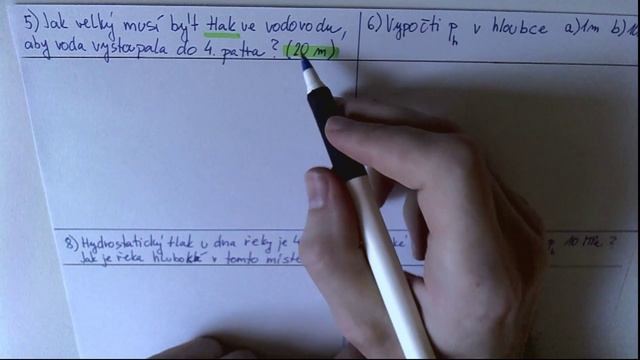 5) Jak velký musí být tlak ve vodovodu,
aby voda vystoupala do 4. patra? (20 m)
6) Vypočti p h v hloubce a) 1m b) 10
8) Hydrostatický tlak u dna řeky je 4
Jak je řeka hluboká v tomto místě
p h 10 MPa ?